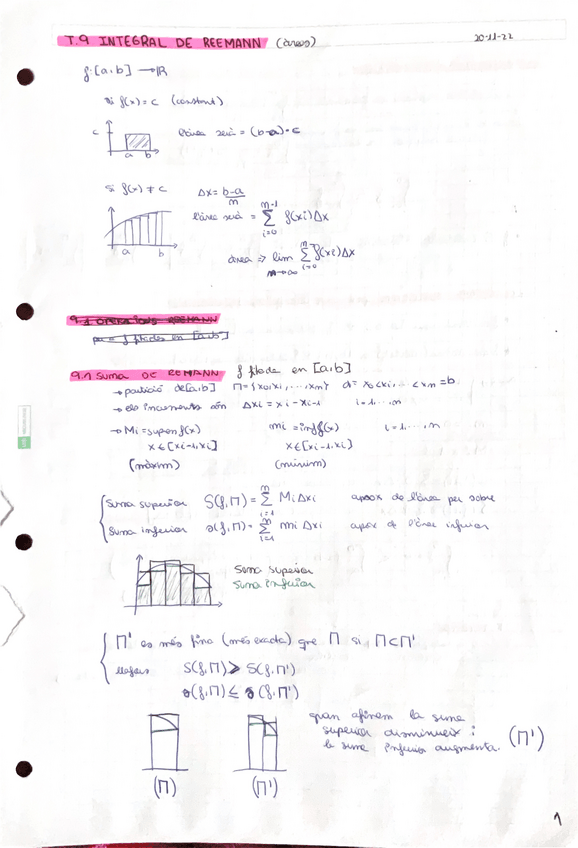 T.9 INTEGRAL DE REEMANN (àrees)
20-11-22
f:[a,b] → ℝ
Si f(x) = c (constant)
c
a b
l'àrea serà = (b-a)·c
Si f(x) ≠ c
Δx = b-a / n
l'àrea serà = Σ_{i=0}^{n-1} f(xi)Δx
a b
àrea => lim_{n→∞} Σ_{i=0}^{n} f(xi)Δx
9.1 OPERACIONS REEMANN
f fitades en [a,b]
9.1 SUMA DE REEMANN f fitada en [a,b]
→ partició de [a,b] Π = {x0,x1,...,xn} a = x0 < x1,... < xn = b
→ els increments són Δxi = xi - xi-1 i=1,...,n
→ Mi = supem f(x) mi = inf f(x) i=1,...,n
x∈[xi-1,xi] x∈[xi-1,xi]
(màxim) (mínim)
Suma superior S(f,Π) = Σ_{i=1}^{n} Mi Δxi aprox de l'àrea per sobre
Suma inferior s(f,Π) = Σ_{i=1}^{n} mi Δxi aprox de l'àrea inferior
Suma superior
Suma inferior
Π' es més fina (més exacta) que Π si Π⊂Π'
llavors S(f,Π) ≥ S(f,Π')
s(f,Π) ≤ s(f,Π')
quan afinem la suma
superior disminueix i
la suma inferior augmenta. (Π')
(Π) (Π')
1